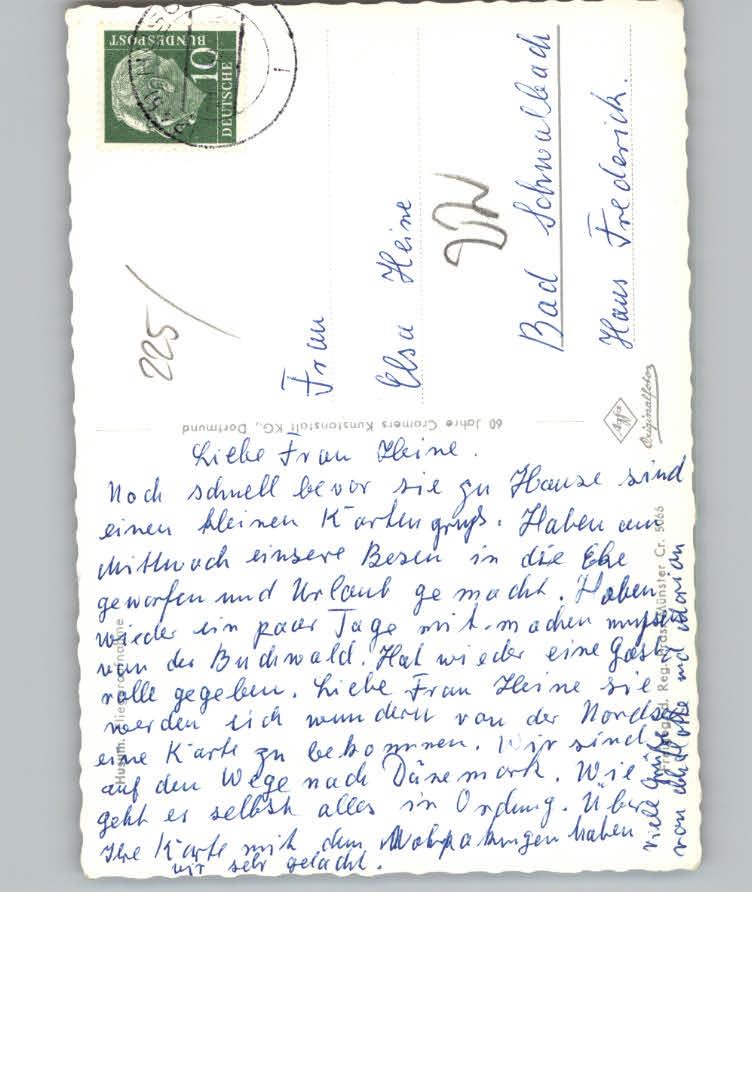 DEUTSCHE
BUNDESPOST
10
225/
Frau
Elsa Heine
Bad Schwalbach
Haus Frederick.
60 Jahre Cramers Kunstanstalt KG., Dortmund
Agfa
Originalfoto
Liebe Frau Heine.
Noch schnell bevor sie zu Hause sind
einen kleinen Kartengruß. Haben am
Mittwoch einsere Besen in die Ebe
geworfen und Urlaub gemacht. Haben
wieder ein paar Tage mit machen müssen
von der Buchwald. Hat wieder eine Gast
rolle gegeben. Liebe Frau Heine sie
werden sich wundern von der Nordsee
eine Karte zu bekommen. Wir sind
auf den Wege nach Dänemark. Wie
geht es selbst alles in Ordung. Über
Ihre Karte mit dem haben
wir sehr gelacht.
viele Grüße
von und Marian
Husum. Fliegeraufnahme
Freigegeb. d. Reg. Präs. Münster Cr. 5066